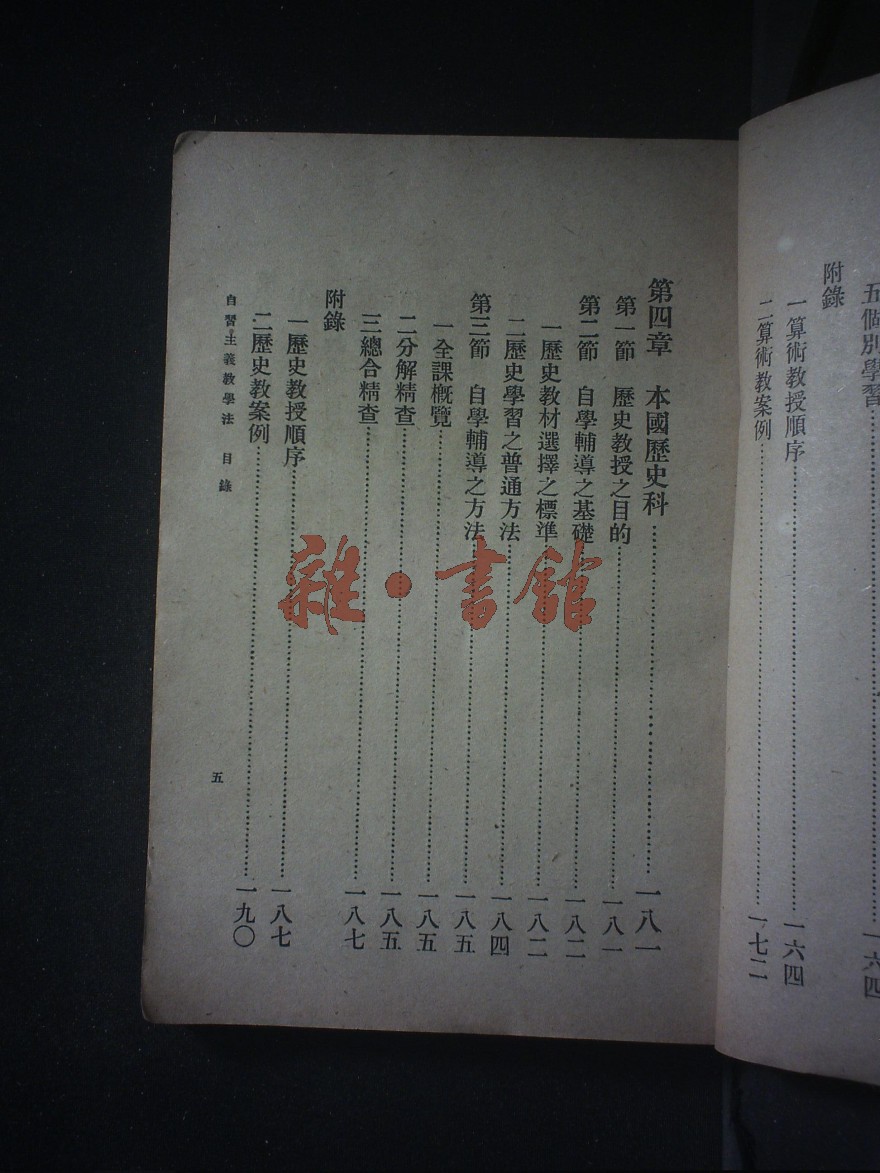 五個別學習……一六四
附錄
一算術教授順序……一六四
二算術教案例……一七二
第四章 本國歷史科……一八一
第一節 歷史教授之目的……一八一
第二節 自學輔導之基礎……一八二
一歷史教材選擇之標準……一八二
二歷史學習之普通方法……一八四
第三節 自學輔導之方法……一八五
一全課概覽……一八五
二分解精查……一八五
三總合精查……一八七
附錄
一歷史教授順序……一八七
二歷史教案例……一九〇
自習主義教學法 目錄
五
雜·書館